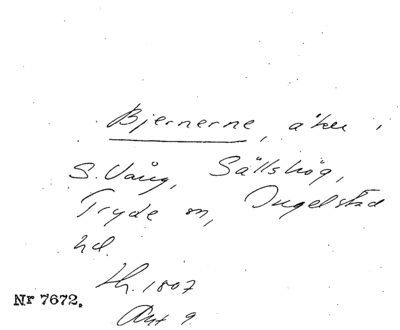 Bjernerne, åker i
S. Vång, Sällshög,
Tryde sn, Ingelstad
hd.
Lh. 1807
Nr 7672.
Akt 9